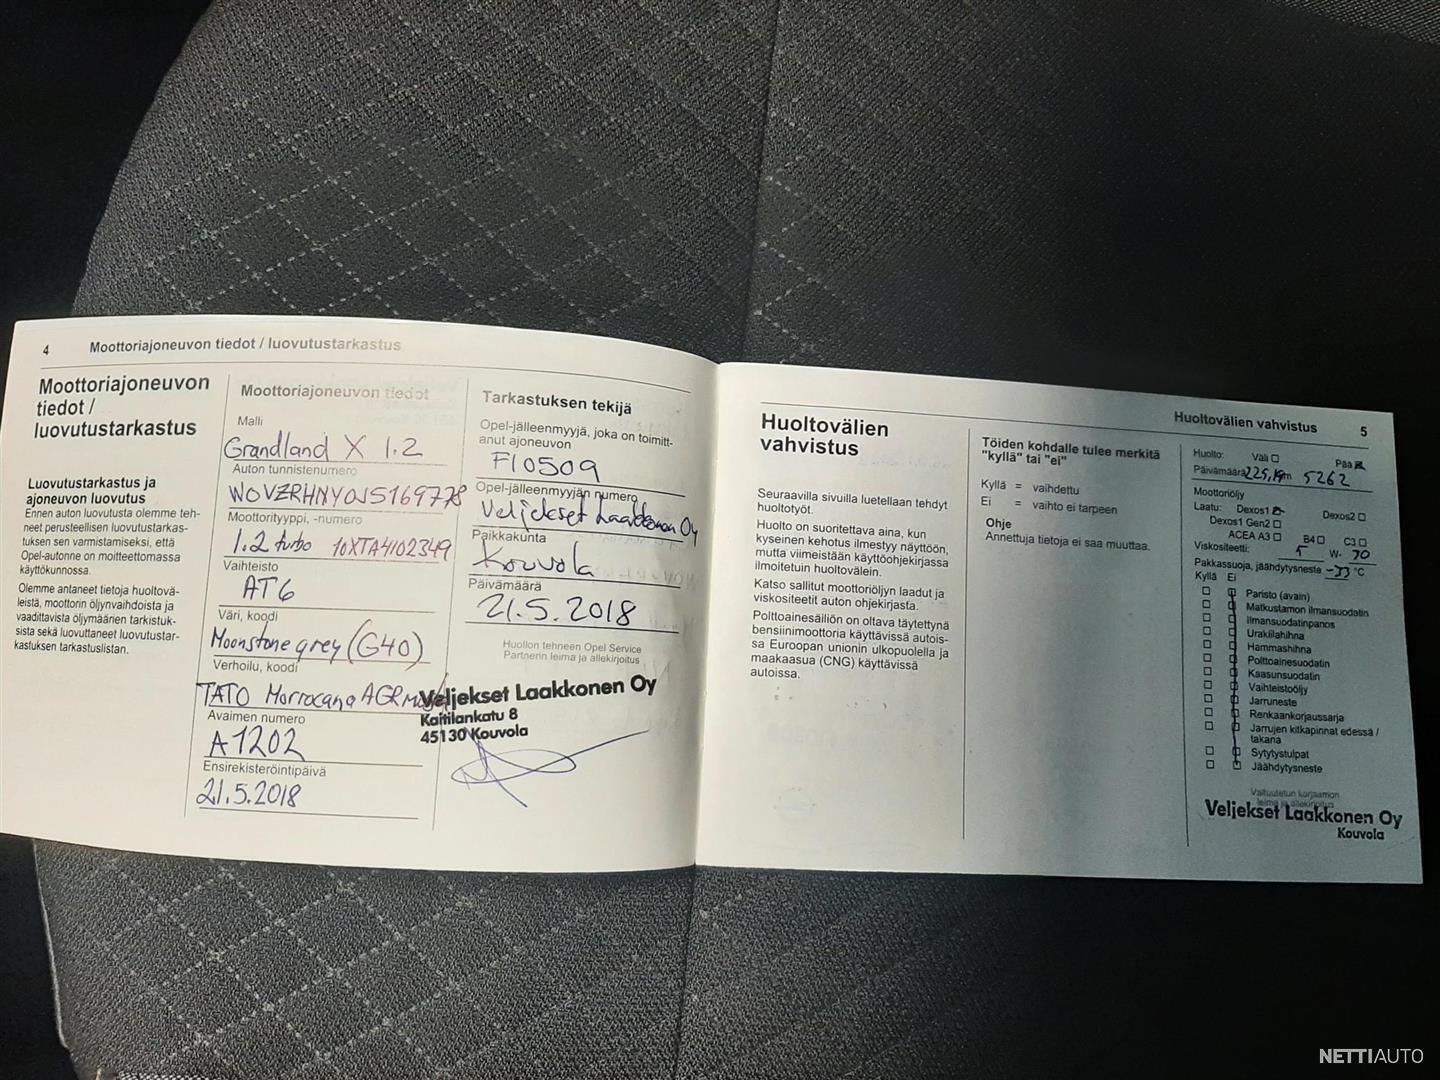 4 Moottoriajoneuvon tiedot / luovutustarkastus
Moottoriajoneuvon
tiedot /
luovutustarkastus
Luovutustarkastus ja
ajoneuvon luovutus
Ennen auton luovutusta olemme teh-
neet perusteellisen luovutustarkas-
tuksen sen varmistamiseksi, että
Opel-autonne on moitteettomassa
käyttökunnossa.
Olemme antaneet tietoja huoltovä-
leistä, moottorin öljynvaihdoista ja
vaadittavista öljymäärien tarkistuk-
sista sekä luovuttaneet luovutustar-
kastuksen tarkastuslistan.
Moottoriajoneuvon tiedot
Malli
Grandland X 1.2
Auton tunnistenumero
W0VZRHNY0J5169778
Moottorityyppi, -numero
1.2 turbo 10XTA4102349
Vaihteisto
AT6
Väri, koodi
Moonstone grey (G40)
Verhoilu, koodi
TATO Morrocana AGR
Avaimen numero
A1202
Ensirekisteröintipäivä
21.5.2018
Tarkastuksen tekijä
Opel-jälleenmyyjä, joka on toimitt-
anut ajoneuvon
FI0509
Opel-jälleenmyyjän numero
Veljekset Laakkonen Oy
Paikkakunta
Kouvola
Päivämäärä
21.5.2018
Huollon tehneen Opel Service
Partnerin leima ja allekirjoitus
Veljekset Laakkonen Oy
Kaitilankatu 8
45130 Kouvola
Huoltovälien vahvistus 5
Huoltovälien
vahvistus
Seuraavilla sivuilla luetellaan tehdyt
huoltotyöt.
Huolto on suoritettava aina, kun
kyseinen kehotus ilmestyy näyttöön,
mutta viimeistään käyttöohjekirjassa
ilmoitetuin huoltovälein.
Katso sallitut moottoriöljyn laadut ja
viskositeetit auton ohjekirjasta.
Polttoainesäiliön on oltava täytettynä
bensiinimoottoria käyttävissä autois-
sa Euroopan unionin ulkopuolella ja
maakaasua (CNG) käyttävissä
autoissa.
Töiden kohdalle tulee merkitä
"kyllä" tai "ei"
Kyllä = vaihdettu
Ei = vaihto ei tarpeen
Ohje
Annettuja tietoja ei saa muuttaa.
Huolto: Väli Pää
Päivämäärä 5262
Moottoriöljy
Laatu: Dexos1 Dexos2
Dexos1 Gen2
ACEA A3 B4 C3
Viskositeetti: 5 W-
Pakkassuoja, jäähdytysneste -33 °C
Kyllä Ei
Paristo (avain)
Matkustamon ilmansuodatin
Ilmansuodatinpanos
Urakiilahihna
Hammashihna
Polttoainesuodatin
Kaasunsuodatin
Vaihteistoöljy
Jarruneste
Renkaankorjaussarja
Jarrujen kitkapinnat edessä /
takana
Sytytystulpat
Jäähdytysneste
Valtuutetun korjaamon
leima ja allekirjoitus
Veljekset Laakkonen Oy
Kouvola
NETTIAUTO